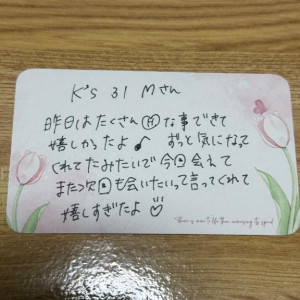 K's 31 Mさん
昨日はたくさんHな事できて
嬉しかったよ♪ ずっと気になって
くれてたみたいで今回会えて
また次回も会いたいって言ってくれて
嬉しすぎたよ